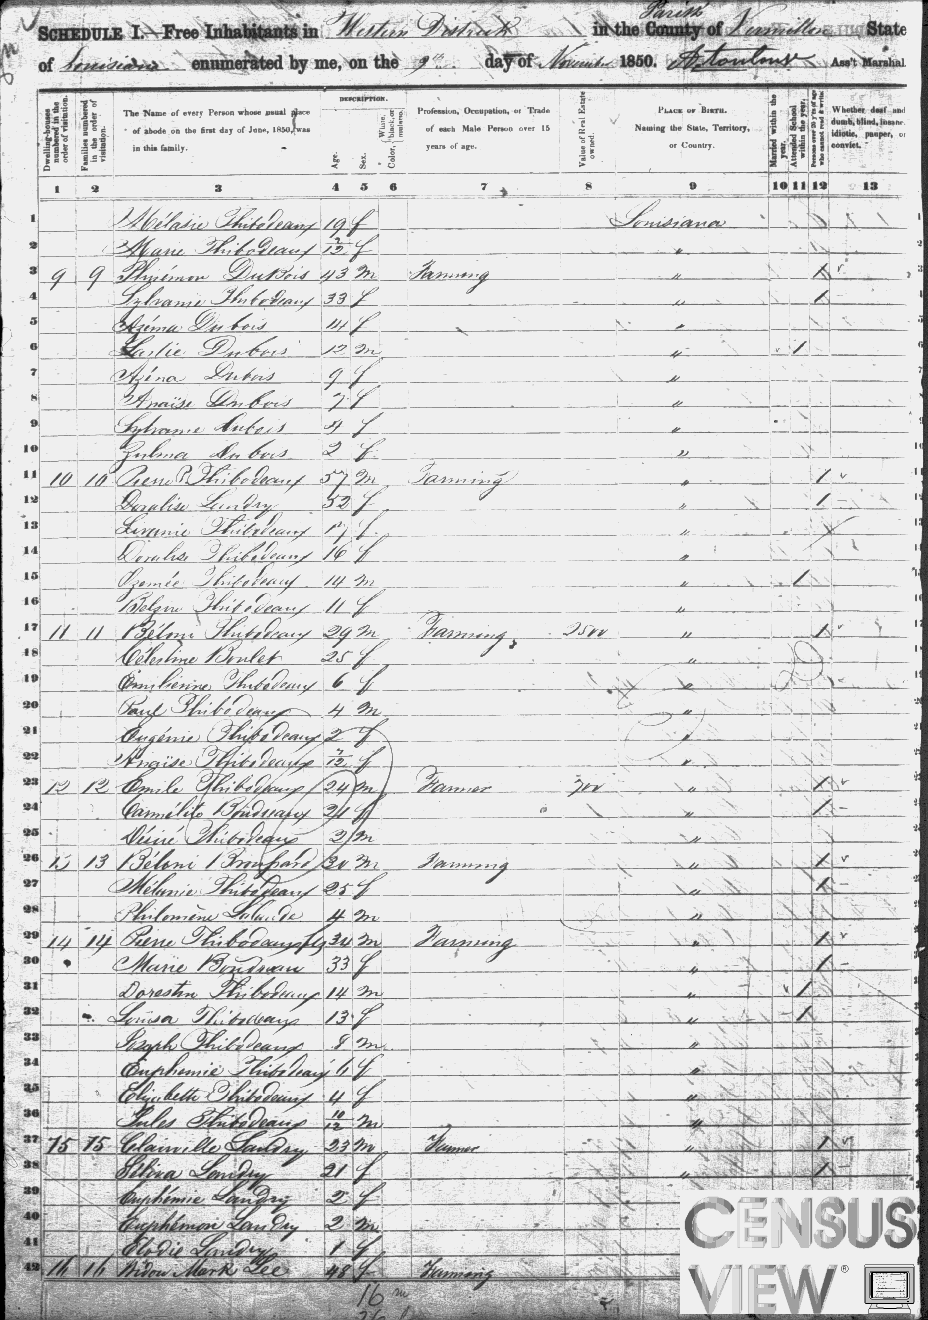 SCHEDULE I.—Free Inhabitants in Western District in the County of Parish Vermillion State
of Louisiana enumerated by me, on the 9th day of November 1850. Ass't Marshal
Dwelling-houses numbered in the order of visitation.
Families numbered in the order of visitation.
The Name of every Person whose usual place of abode on the first day of June, 1850, was in this family.
DESCRIPTION.
Age.
Sex.
Color, White, black, or mulatto.
Profession, Occupation, or Trade of each Male Person over 15 years of age.
Value of Real Estate owned.
PLACE OF BIRTH. Naming the State, Territory, or Country.
Married within the year.
Attended School within the year.
Persons over 20 y'rs of age who cannot read & write.
Whether deaf and dumb, blind, insane, idiotic, pauper, or convict.
1 2 3 4 5 6 7 8 9 10 11 12 13
1 Mélasie Thibodeaux 19 f Louisiana
2 Marie Thibodeaux f "
3 9 9 DuBois 43 m Farming " 1
4 Sylvanie Thibodeaux 33 f " 1
5 Azéma Dubois 14 f "
6 Dubois 12 m " 1
7 Azéna Dubois 9 f "
8 Anaïse Dubois 7 f "
9 Sylvanie Dubois 4 f "
10 Zulma Dubois 2 f "
11 10 10 Pierre P. Thibodeaux 57 m Farming " 1
12 Doralise Landry 52 f " 1
13 Thibodeaux 17 f "
14 Doralise Thibodeaux 16 f "
15 Thibodeaux 14 m " 1
16 Thibodeaux 11 f "
17 11 11 Béloni Thibodeaux 29 m Farming 2500 " 1
18 Célestine Boulet 25 f "
19 Émilienne Thibodeaux 6 f "
20 Paul Thibodeaux 4 m "
21 Eugénie Thibodeaux 2 f "
22 Anaïse Thibodeaux f "
23 12 12 Emile Thibodeaux 24 m Farmer 700 " 1
24 Carmélite Boudreaux 21 f " 1
25 Désiré Thibodeaux 2 m "
26 13 13 Béloni Broussard 30 m Farming " 1
27 Mélanie Thibodeaux 25 f " 1
28 Philomène Lalande 4 m "
29 14 14 Pierre Thibodeaux fils 34 m Farming " 1
30 Marie Boudreau 33 f " 1
31 Dorestin Thibodeaux 14 m " 1
32 Louisa Thibodeaux 13 f " 1
33 Joseph Thibodeaux 8 m "
34 Euphemie Thibodeaux 6 f "
35 Elizabeth Thibodeaux 4 f "
36 Jules Thibodeaux 10/12 m "
37 15 15 Clairville Landry 23 m Farmer " 1
38 Landry 21 f " 1
39 Euphémie Landry 2 f
40 Euphémon Landry 2 m
41 Elodie Landry 1 f
42 16 16 Widow Mark Lee 48 f Farming
16 m
26 f
CENSUS
VIEW®